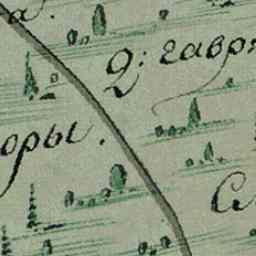 а.
2: гавр
оры.
С